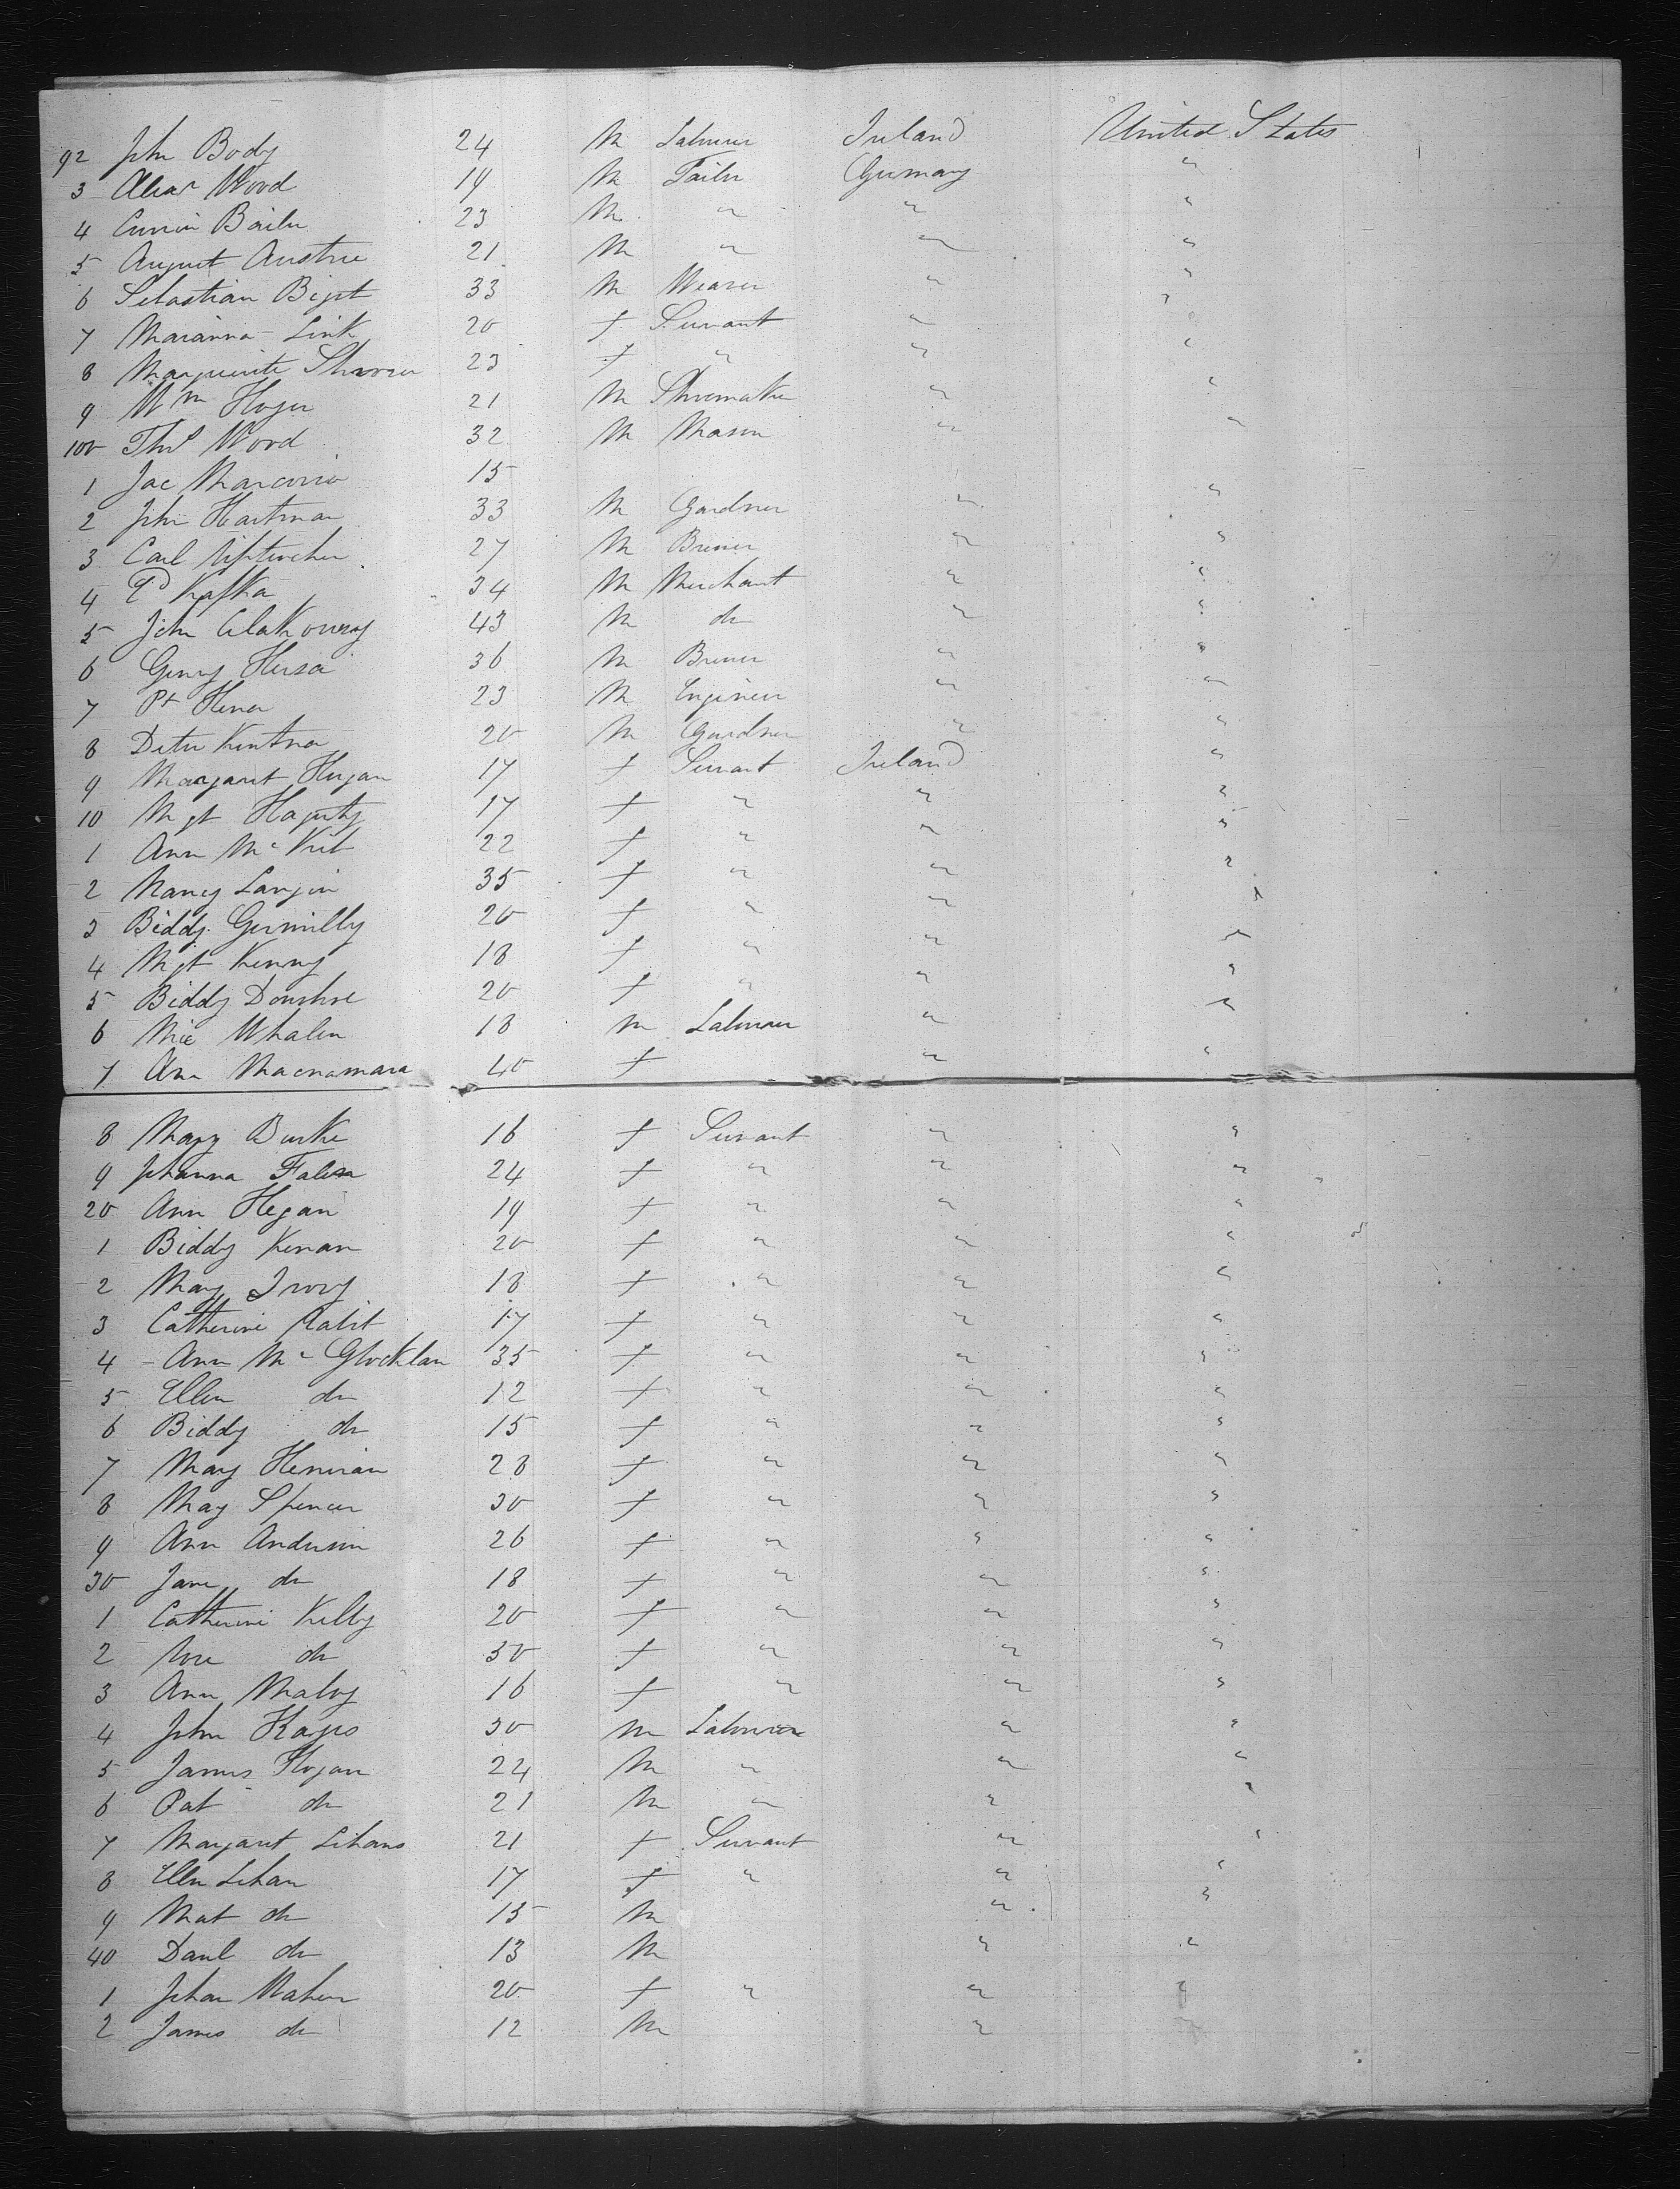 92 John Body 24 M Labourer Ireland United States
3 Alexr Wood 19 M Tailor Germany "
4 Bailer 23 M " " "
5 August Austrie 21 M " " "
6 Sebastian Bigst 33 M Weaver " "
7 Marianna Link 20 f Servant " "
8 Marguerite 23 f " " "
9 Wm Hoger 21 M Shoemaker " "
100 Thos Wood 32 M Mason " "
1 Jac Marcovia 15
2 John Hartman 33 M Gardner " "
3 Carl 27 M Brewer " "
4 Kafka 34 M Merchant " "
5 John 43 M do " "
6 Georg Hersa 36 M Brewer " "
7 Pt Hena 23 M Engineer " "
8 Kentna 20 M Gardner " "
9 Margaret Hogan 17 f Servant Ireland "
10 Mgt Hagerty 17 f " " "
1 Ann Mc 22 f " " "
2 Nancy Langin 35 f " " "
3 Biddy Gormilly 20 f " " "
4 Mgt Kenny 18 f " " "
5 Biddy Donohoe 20 f " " "
6 Mic Whalen 18 M Labourer " "
7 Ann Macnamara 40 f " "
8 Mary Burke 16 f Servant " "
9 Johanna Falen 24 f " " "
20 Ann Hegan 19 f " " "
1 Biddy Kenan 20 f " " "
2 Mary Ivory 18 f " " "
3 Catherine 17 f " " "
4 Ann Mc Glocklan 35 f " " "
5 Ellen do 12 f " " "
6 Biddy do 15 f " " "
7 Mary Henuran 28 f " " "
8 Mary Spencer 30 f " " "
9 Ann Anderson 26 f " " "
30 Jane do 18 f " " "
1 Catherine Kelly 20 f " " "
2 Rose do 30 f " " "
3 Ann Maloy 16 f " " "
4 John Hayes 30 M Labourer " "
5 James Hogan 24 M " " "
6 Pat do 21 M " " "
7 Margaret Lihans 21 f Servant " "
8 Ellen Lihan 17 f " " "
9 Mat do 15 M " "
40 Danl do 13 M " "
1 Johan Maher 20 f " " "
2 James do 12 M " "